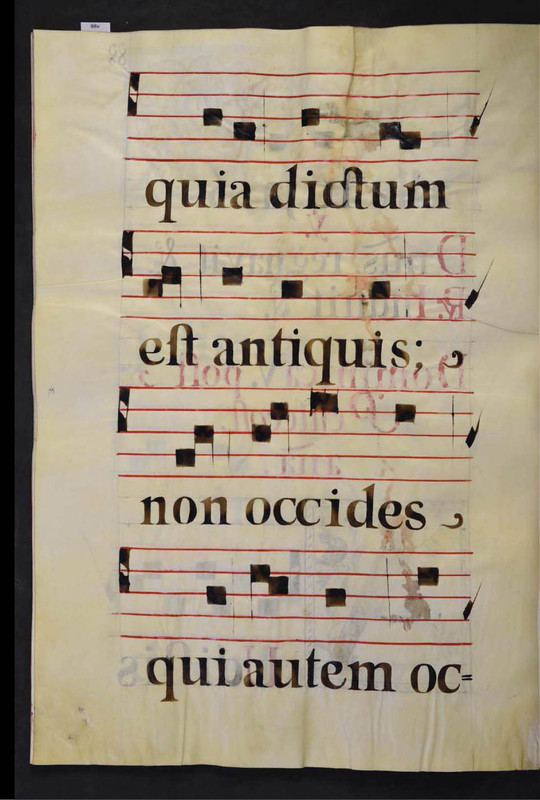 quia dictum
est antiquis;
non occides
qui autem oc=